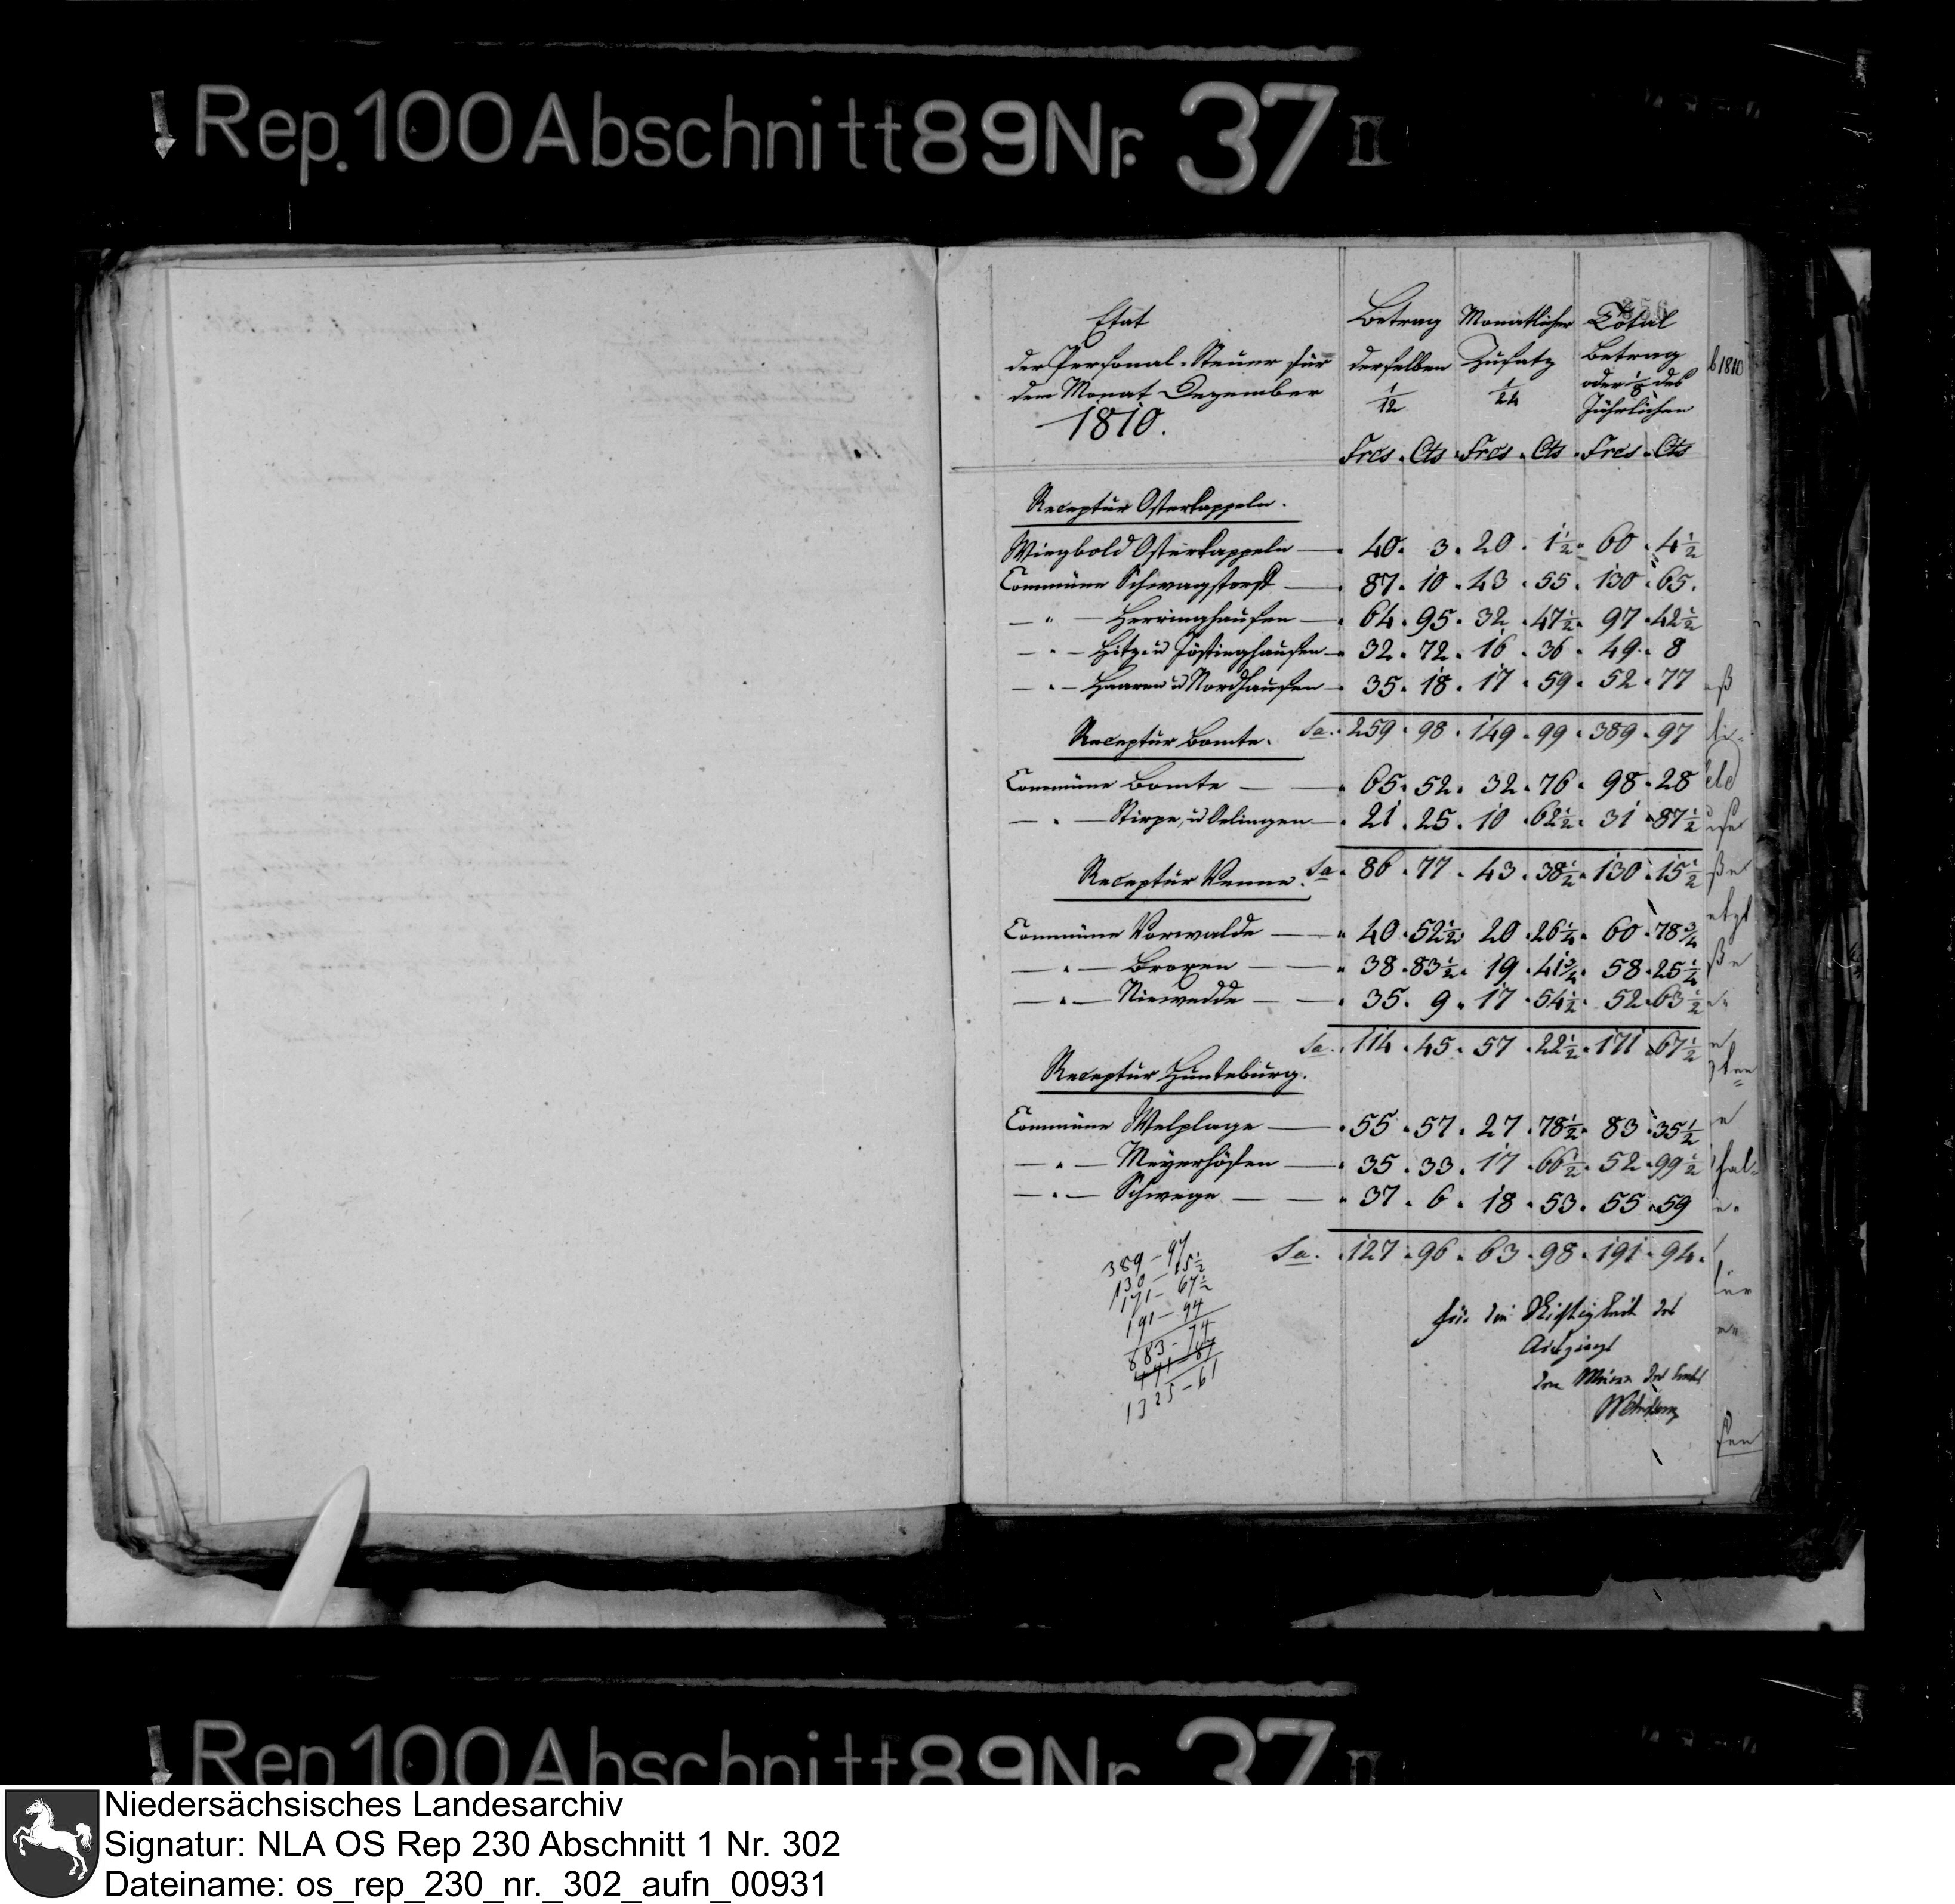 Rep. 100 Abschnitt 89 Nr. 37 II
356
Etat
der Personal-Steuer für
dem Monat Dezember
1810.
Betrag derselben 1/12
Monatlicher Zusatz 1/24
Total Betrag oder 1/8 des Jährlichen
Frcs. Cts. Frcs. Cts. Frcs. Cts
b 1810
Receptur Osterkappeln.
Wiegbold Osterkappeln — 40. 3. 20. 1½. 60. 4½
Commüne Schwagstorf — 87. 10. 43. 55. 130. 65.
— " — Herringhausen — 64. 95. 32. 47½. 97. 42½
— " — Hitz- u Jöstinghausen — 32. 72. 16. 36. 49. 8
— " — Haaren u Nordhausen — 35. 18. 17. 59. 52. 77
Sa. 259. 98. 149. 99. 389. 97
Receptur Bomte.
Commüne Bomte — 65. 52. 32. 76. 98. 28
— " — Stirpe, u Oelingen — 21. 25. 10. 62½. 31. 87½
Sa. 86. 77. 43. 38½. 130. 15½
Receptur Venne.
Commüne Vorwalde — 40. 52½. 20. 26¼. 60. 78¾
— " — Broxen — 38. 83½. 19. 41¾. 58. 25¼
— " — Niewedde — 35. 9. 17. 54½. 52. 63½
Sa. 114. 45. 57. 22½. 171. 67½
Receptur Hunteburg.
Commüne Welplage — 55. 57. 27. 78½. 83. 35½
— " — Meyerhöfen — 35. 33. 17. 66½. 52. 99½
— " — Schwege — 37. 6. 18. 53. 55. 59
Sa. 127. 96. 63. 98. 191. 94.
389 – 97
130 – 15½
171 – 67½
191 – 94
883 – 74
1325 – 61
für die Richtigkeit des
Auszugs
der Maire des
Rep. 100 Abschnitt 89 Nr. 37 II
Niedersächsisches Landesarchiv
Signatur: NLA OS Rep 230 Abschnitt 1 Nr. 302
Dateiname: os_rep_230_nr._302_aufn_00931